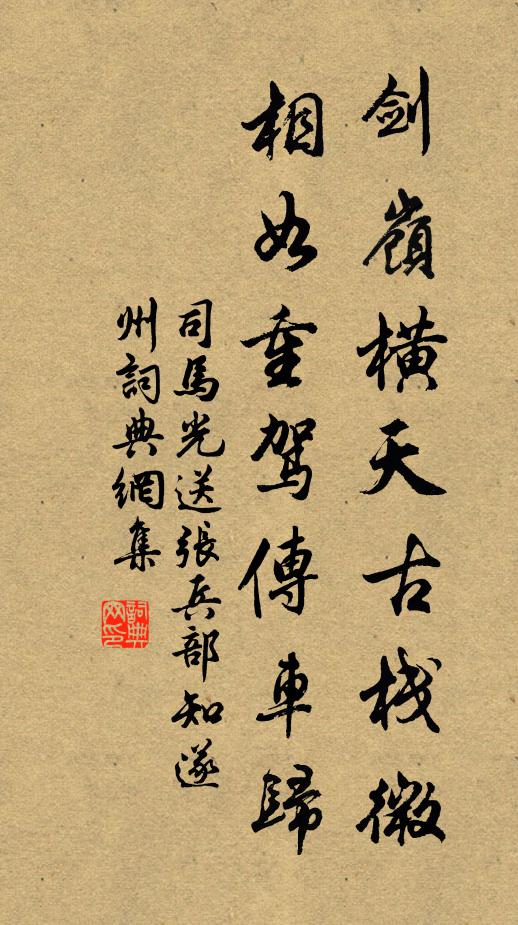 劍嶺橫天古棧微
相如重駕傳車歸
司馬光送張兵部知遂
州詞典網集
詞典網印